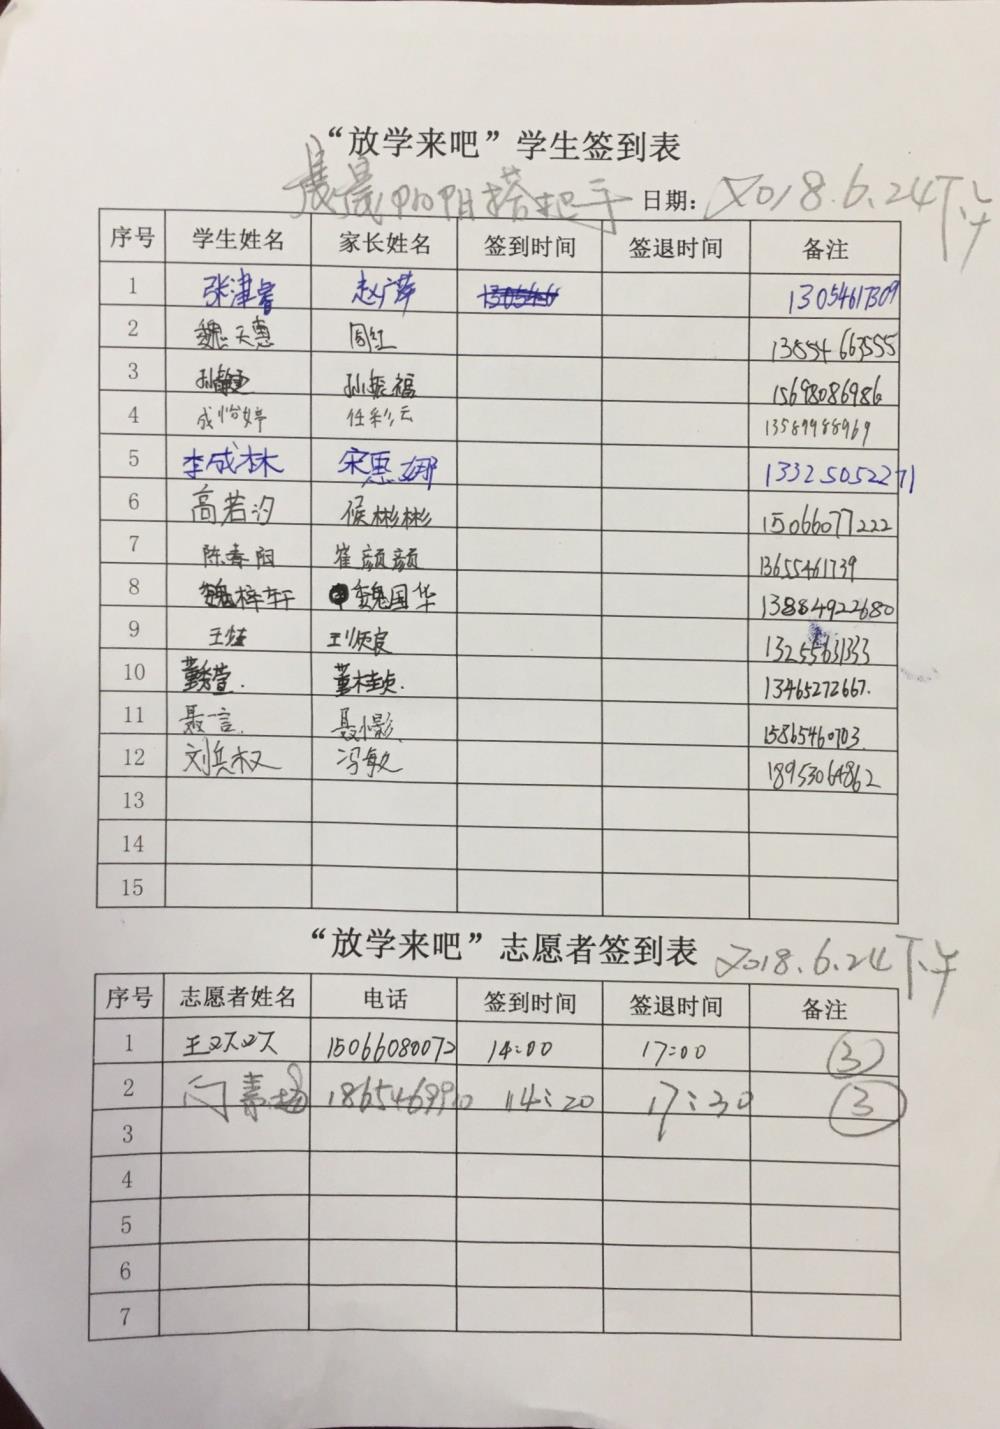 “放学来吧”学生签到表
晨晨阳阳搭把手 日期：2018.6.24下午
序号 学生姓名 家长姓名 签到时间 签退时间 备注
1 张津睿 赵广萍 13054617309
2 魏天惠 周红 13554663555
3 孙振福 15698086986
4 成怡婷 任彩云 13589988969
5 李成林 宋惠娜 13325052271
6 高若汐 候彬彬 15066077222
7 陈春阳 崔颜颜 13655461739
8 魏梓轩 魏国华 13884922680
9 13255631333
10 董桂贞. 13465272667.
11 聂言. 聂小影. 15865460703.
12 刘兵权 冯敏 18953064862
13
14
15
“放学来吧”志愿者签到表 2018.6.24下午
序号 志愿者姓名 电话 签到时间 签退时间 备注
1 王双双 15066080072 14:00 17:00 ③
2 14:20 17:30 ③
3
4
5
6
7